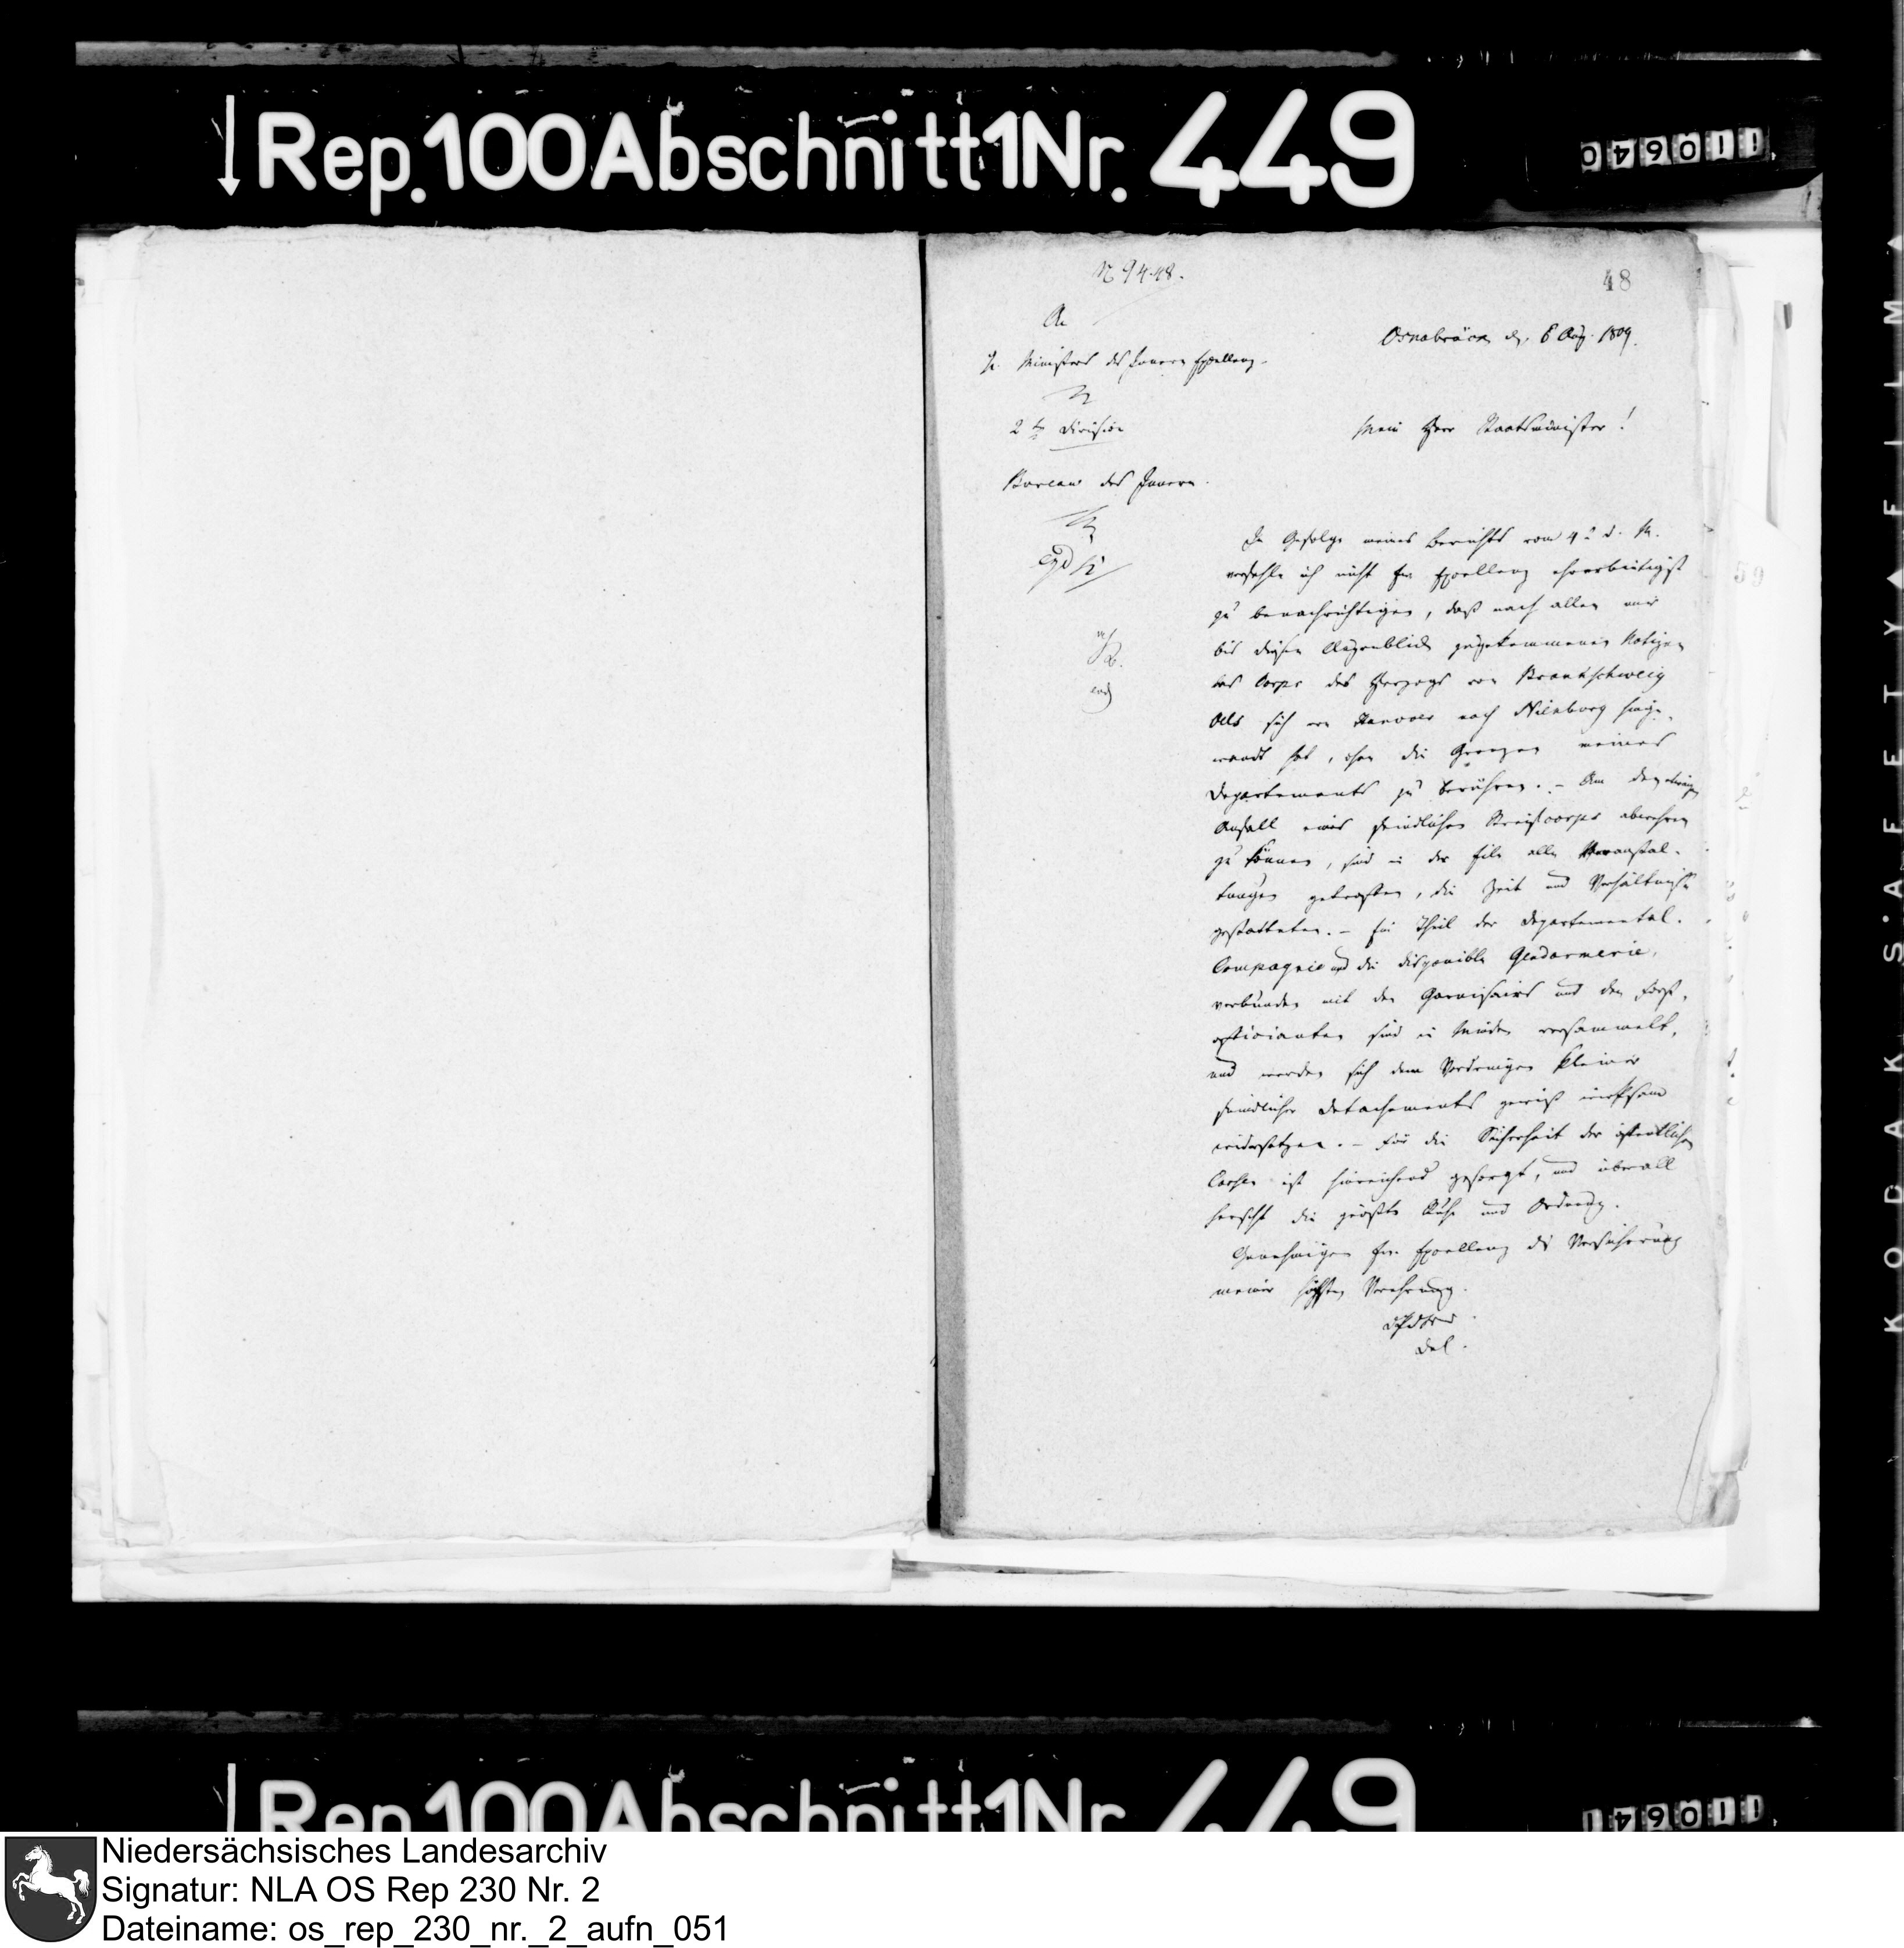 Rep.100Abschnitt1Nr.449
110640
N 9448.
48
An
Osnabrück d. 6 Aug. 1809.
Ministers des Innern Excellenz
2te Division
Mein Herr Staatsminister!
Bureau des Innern.
In Gefolge meines Berichts vom 4t d. M.
verfehle ich nicht Ew Excellenz ehrerbietigst
zu benachrichtigen, daß nach allen mir
bis diesen Augenblick zugekommenen Notizen
das Corps des Herzogs von Braunschweig
Oels sich von Hanover nach Nienburg hinge-
wandt hat, ohne die Grenzen meines
Departements zu berühren. – Um den etwaigen
Anfall eines feindlichen Streifcorps abwehren
zu können, sind in der Eile alle Veranstal-
tungen getroffen, die Zeit und Verhältniße
gestatteten. – Ein Theil der Departemental-
Compagnie und die disponible Gendarmerie,
verbunden mit den Garnisairs und den Forst-
officianten sind in Minden versammelt,
und werden sich dem Vordringen kleiner
feindlicher Detachements gewiß wirksam
widersetzen. – Für die Sicherheit der öffentlichen
Cassen ist hinreichend gesorgt, und überall
herrscht die größte Ruhe und Ordnung.
Genehmigen Ew. Excellenz die Versicherung
meiner höchsten Verehrung.
59
KODAK S'AFETY FILM
Rep.100Abschnitt1Nr.449
110641
Niedersächsisches Landesarchiv
Signatur: NLA OS Rep 230 Nr. 2
Dateiname: os_rep_230_nr._2_aufn_051